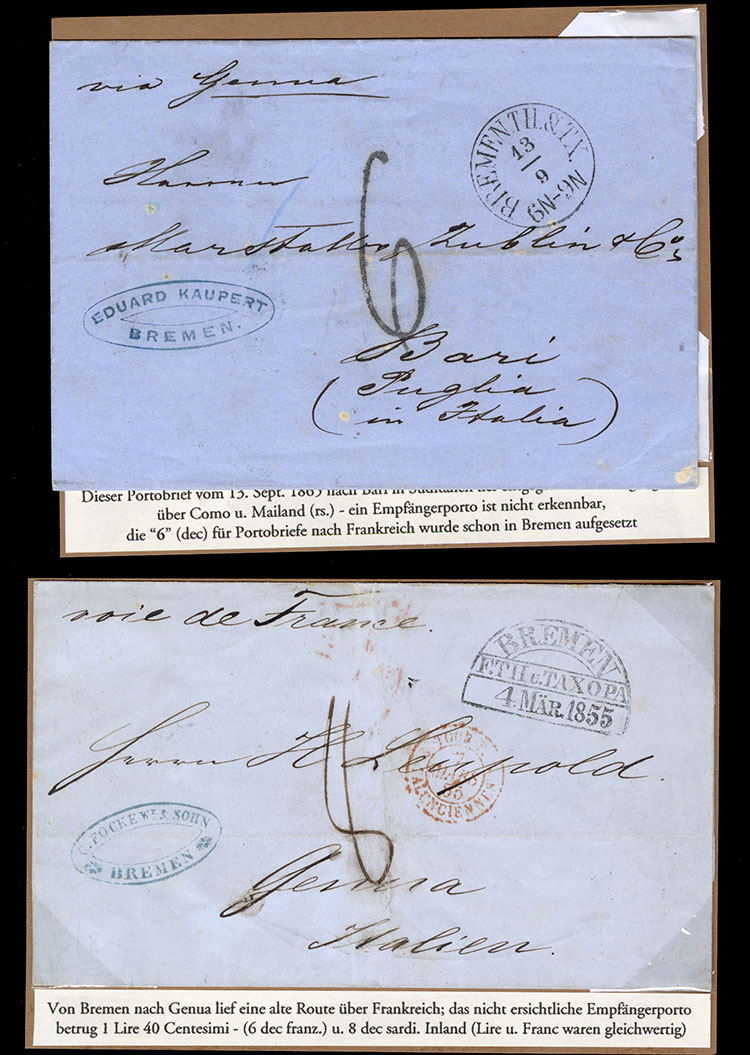 via Genua
BREMEN TH. & TX.
13
/
9
6N-9N
Herren
6
Marstaller, Zublin & Co,
EDUARD KAUPERT
BREMEN.
Bari
(Puglia
in Italia)
Dieser Portobrief vom 13. Sept. 1865 nach Bari in Süditalien
über Como u. Mailand (rs.) - ein Empfängerporto ist nicht erkennbar,
die “6” (dec) für Portobriefe nach Frankreich wurde schon in Bremen aufgesetzt
voie de France.
BREMEN
F. TH. u. TAX OPA
4. MÄR. 1855
TOUR-T.
7
MARS
55
VALENCIENNES
Herrn H. Leupold.
C. FOCKE WE & SOHN
BREMEN
Genua
Italien.
Von Bremen nach Genua lief eine alte Route über Frankreich; das nicht ersichtliche Empfängerporto
betrug 1 Lire 40 Centesimi - (6 dec franz.) u. 8 dec sardi. Inland (Lire u. Franc waren gleichwertig)